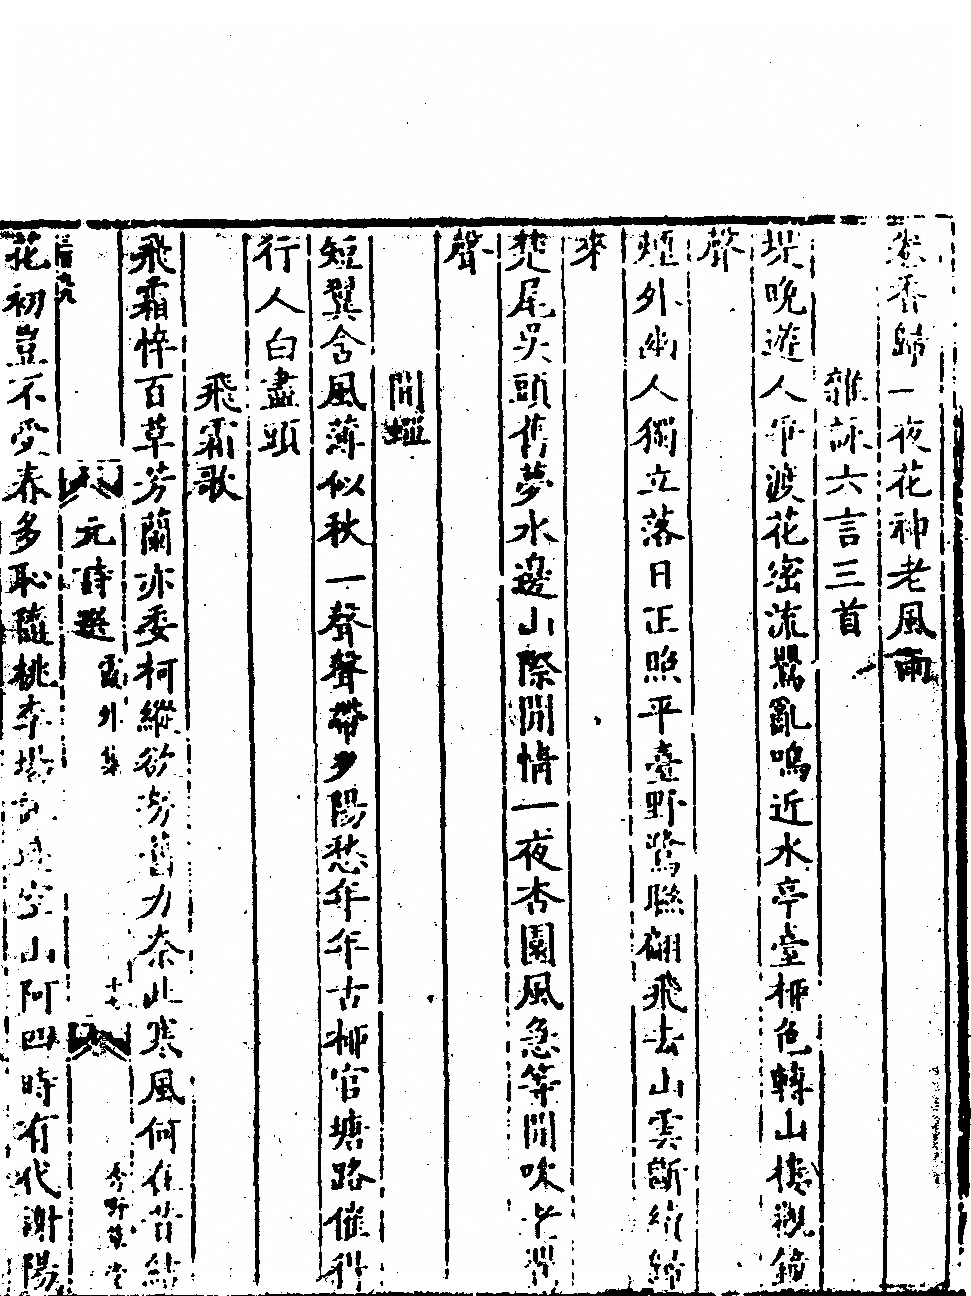 香歸一夜花神老風雨
雜詠六言三首
堤晚遊人爭渡花密流鶯亂鳴近水亭臺柳色轉山樓觀鐘
聲
煙外幽人獨立落日正照平臺野鷺聯翩飛去山雲斷續歸
來
楚尾吳頭舊夢水邊山際閒情一夜杏園風急等閒
聲
聞蟬
短翼含風薄似秋一聲聲帶夕陽愁年年古柳官塘路催得
行人白盡頭
飛霜歌
飛霜悴百草芳蘭亦委柯縱欲芳舊力奈此寒風何在昔結
元詩選 霞外集 十七 秀野草堂
花初豈不受春多恥隨桃李場 空山阿四時有代謝陽